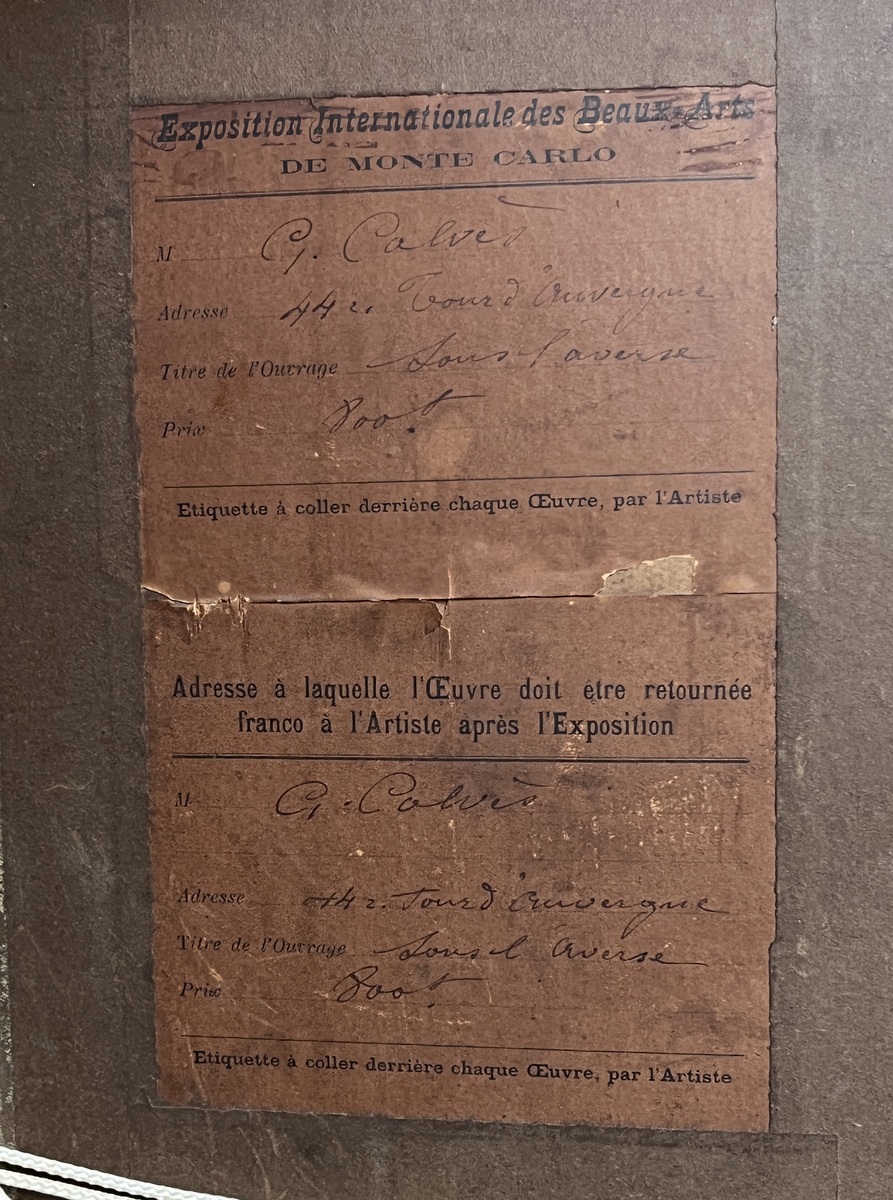 Exposition Internationale des Beaux-Arts
DE MONTE CARLO
M G. Calvès
Adresse 44 r. Tour d'Auvergne
Titre de l'Ouvrage Sous l'averse
Prix 800 f.
Etiquette à coller derrière chaque Œuvre, par l'Artiste
Adresse à laquelle l'Œuvre doit être retournée
franco à l'Artiste après l'Exposition
M G. Calvès
Adresse 44 r. Tour d'Auvergne
Titre de l'Ouvrage Sous l'Averse
Prix 800 f.
Etiquette à coller derrière chaque Œuvre, par l'Artiste